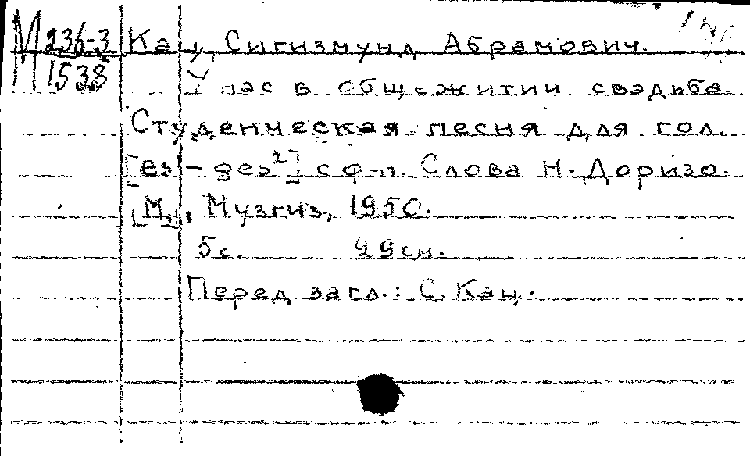 М 236-3 Кац, Сигизмунд Абрамович.
1538
У нас в общежитии свадьба.
Студенческая песня для гол.
с ф-п. Слова Н. Доризо.
[М.], Музгиз, 1950.
5с. 29см.
Перед загл.: С. Кац.